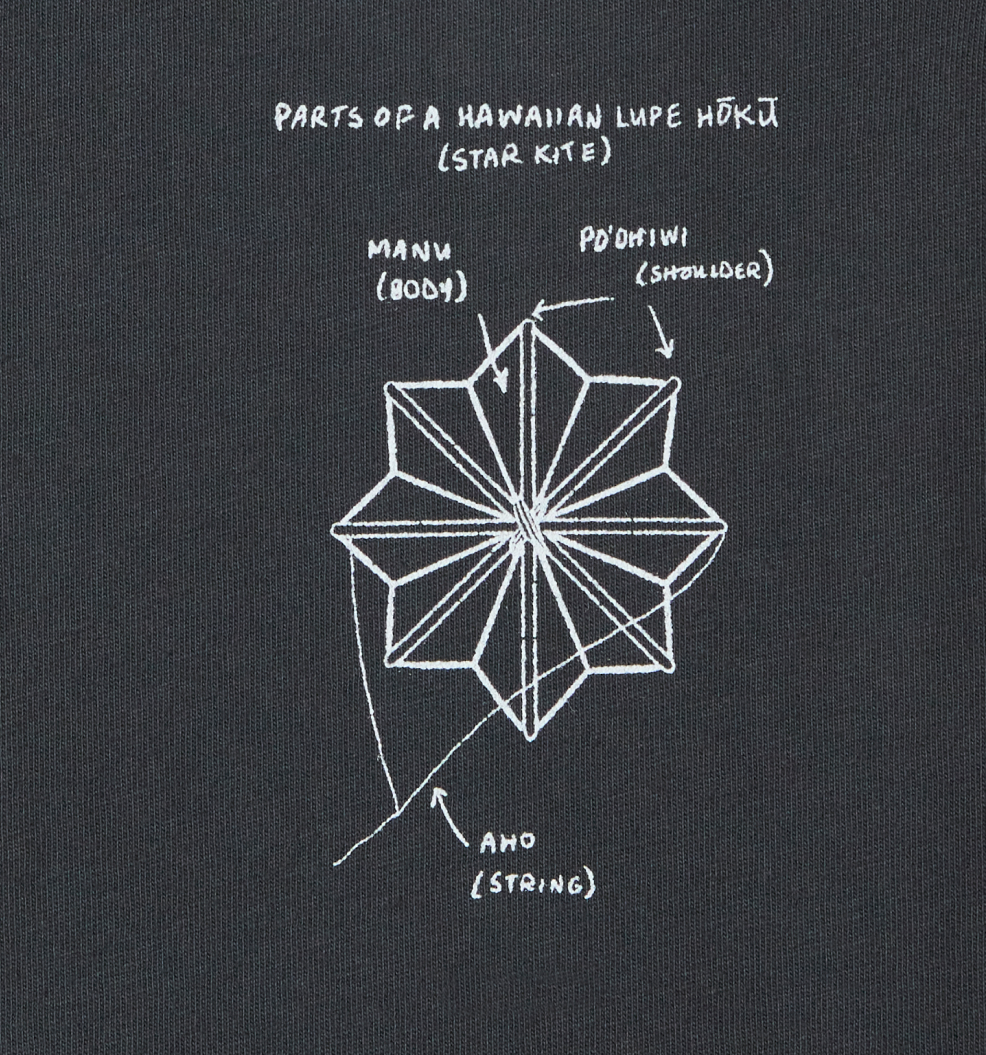 PARTS OF A HAWAIIAN LUPE HŌKŪ
(STAR KITE)
MANU
(BODY)
PO'OHIWI
(SHOULDER)
AHO
(STRING)